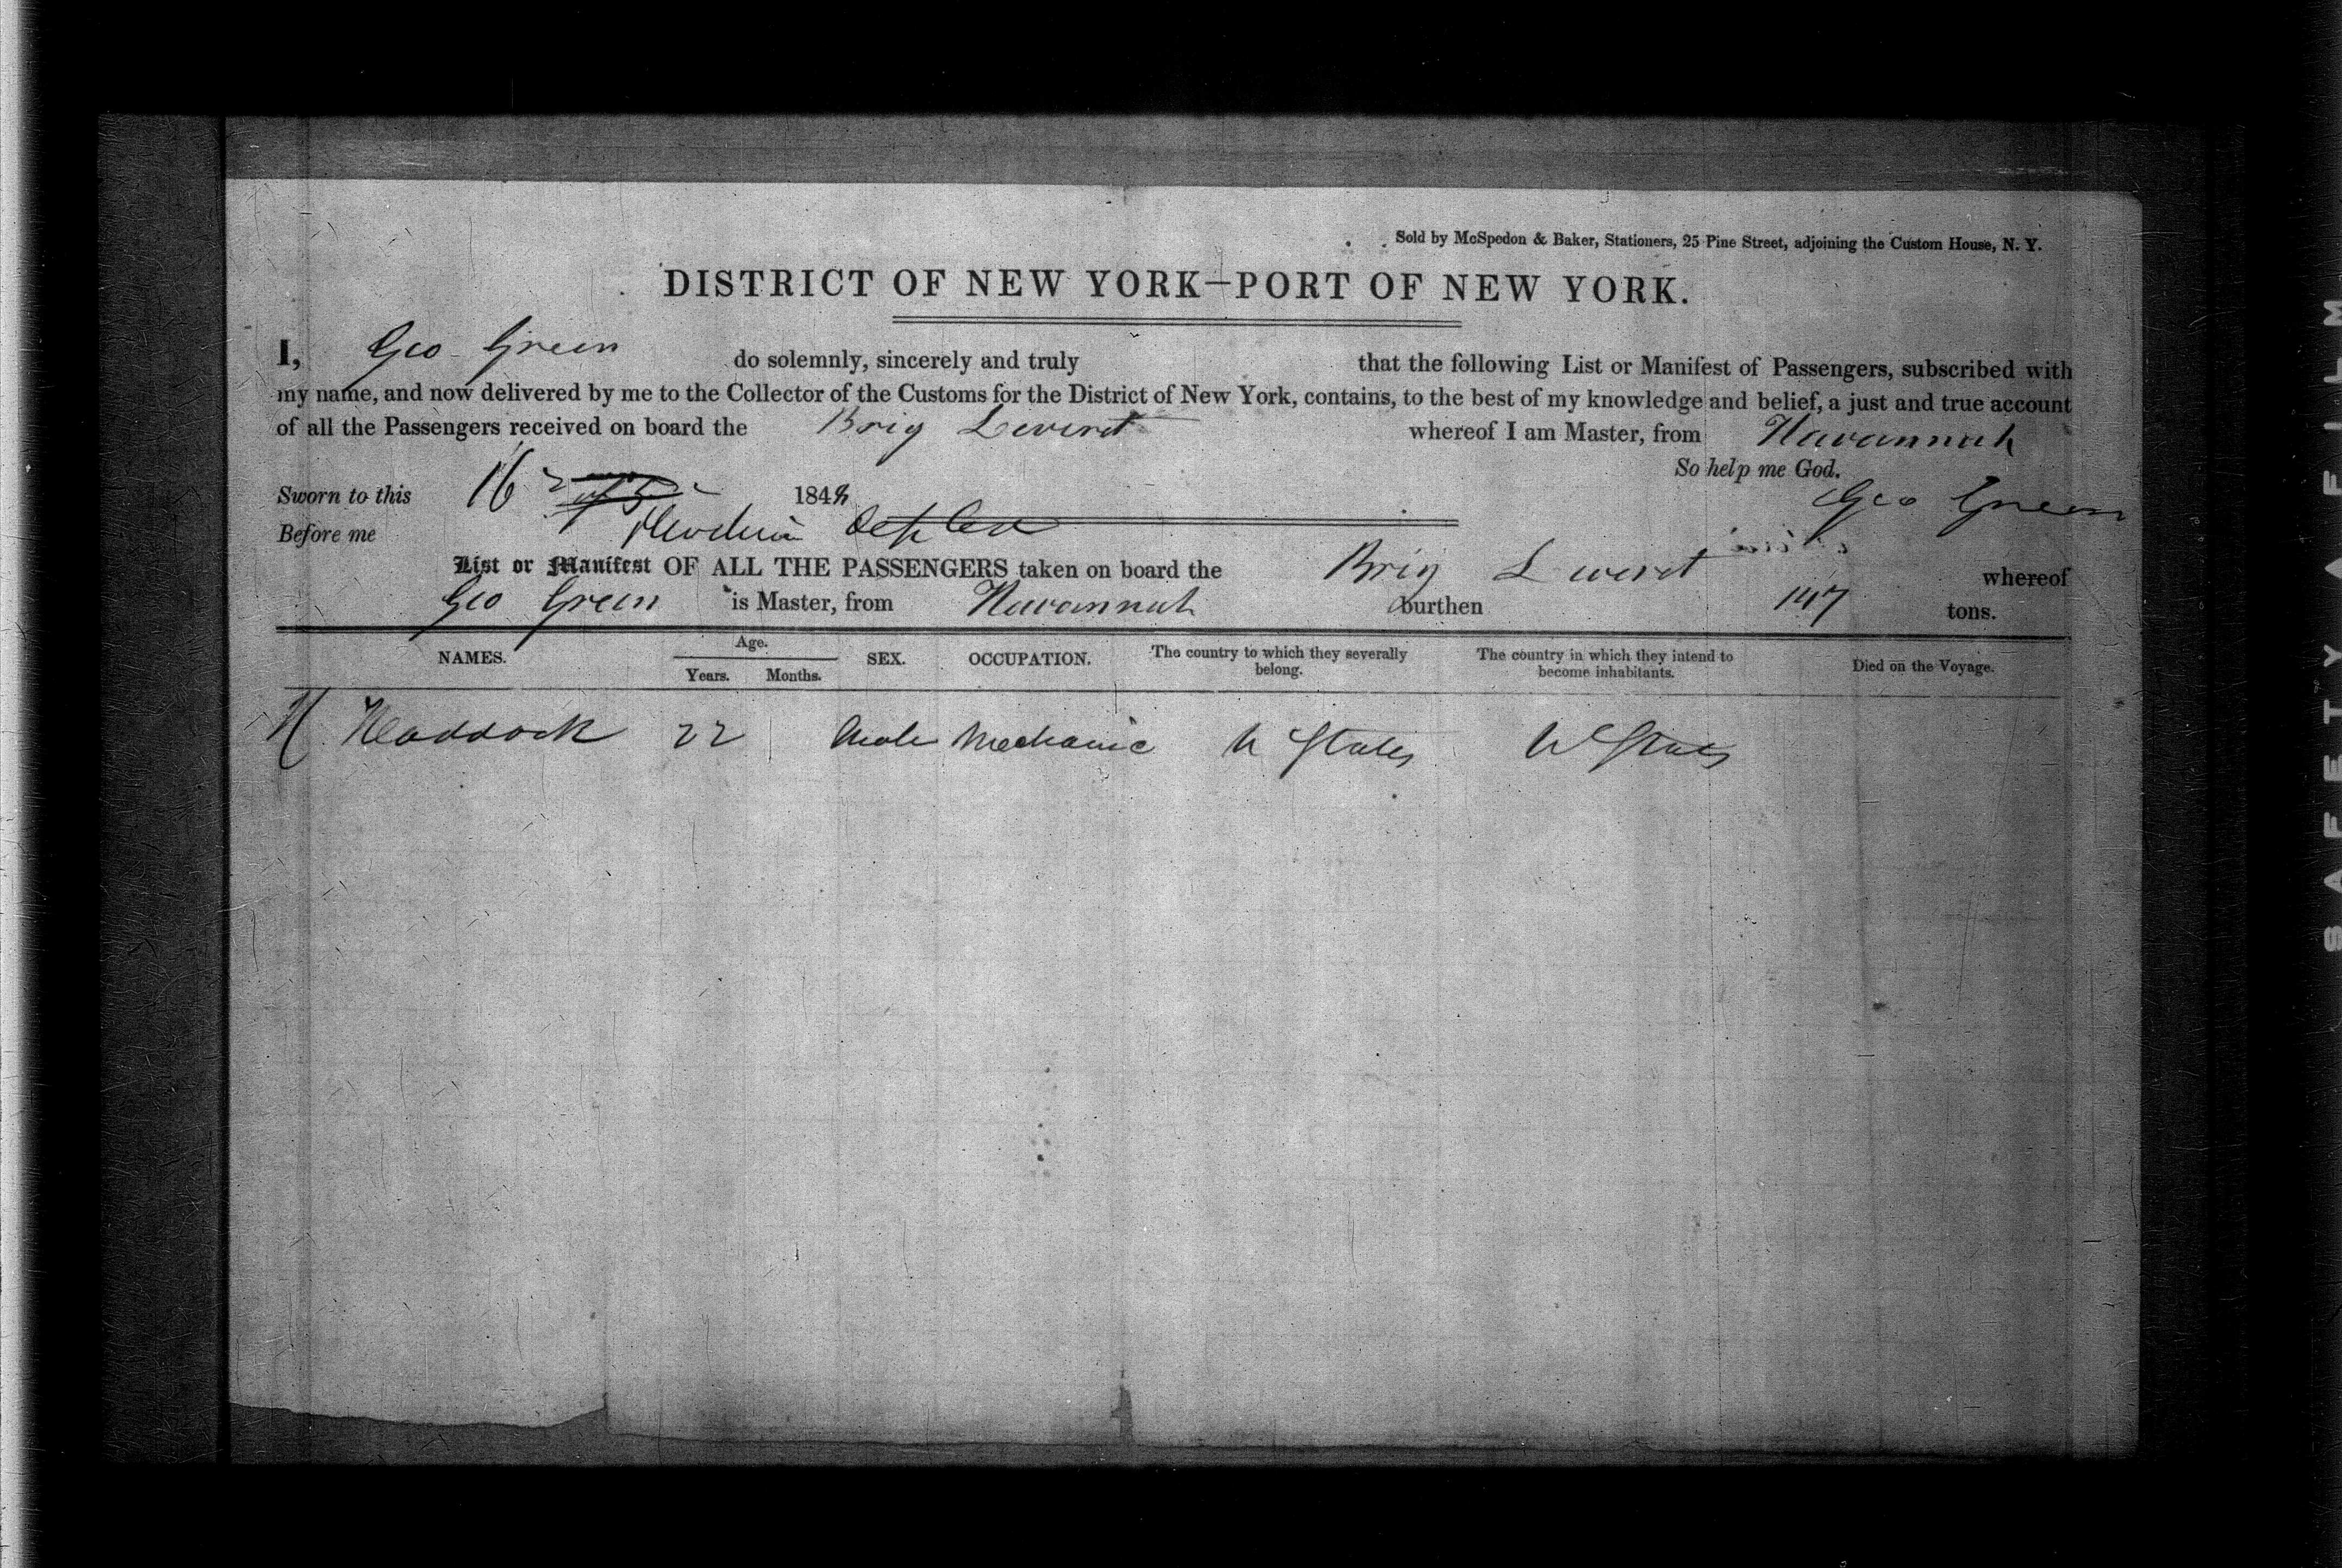 Sold by McSpedon & Baker, Stationers, 25 Pine Street, adjoining the Custom House, N. Y.
DISTRICT OF NEW YORK—PORT OF NEW YORK.
I, Geo Green do solemnly, sincerely and truly that the following List or Manifest of Passengers, subscribed with
my name, and now delivered by me to the Collector of the Customs for the District of New York, contains, to the best of my knowledge and belief, a just and true account
of all the Passengers received on board the Brig Leveret whereof I am Master, from Havannah
So help me God.
Sworn to this 16 1848 Geo Green
Before me
List or Manifest OF ALL THE PASSENGERS taken on board the Brig Leveret whereof
Geo Green is Master, from Havannah burthen 147 tons.
NAMES. Age. Years. Months. SEX. OCCUPATION. The country to which they severally belong. The country in which they intend to become inhabitants. Died on the Voyage.
H. Haddock 22 Male Mechanic U States U States
SAFETY FILM